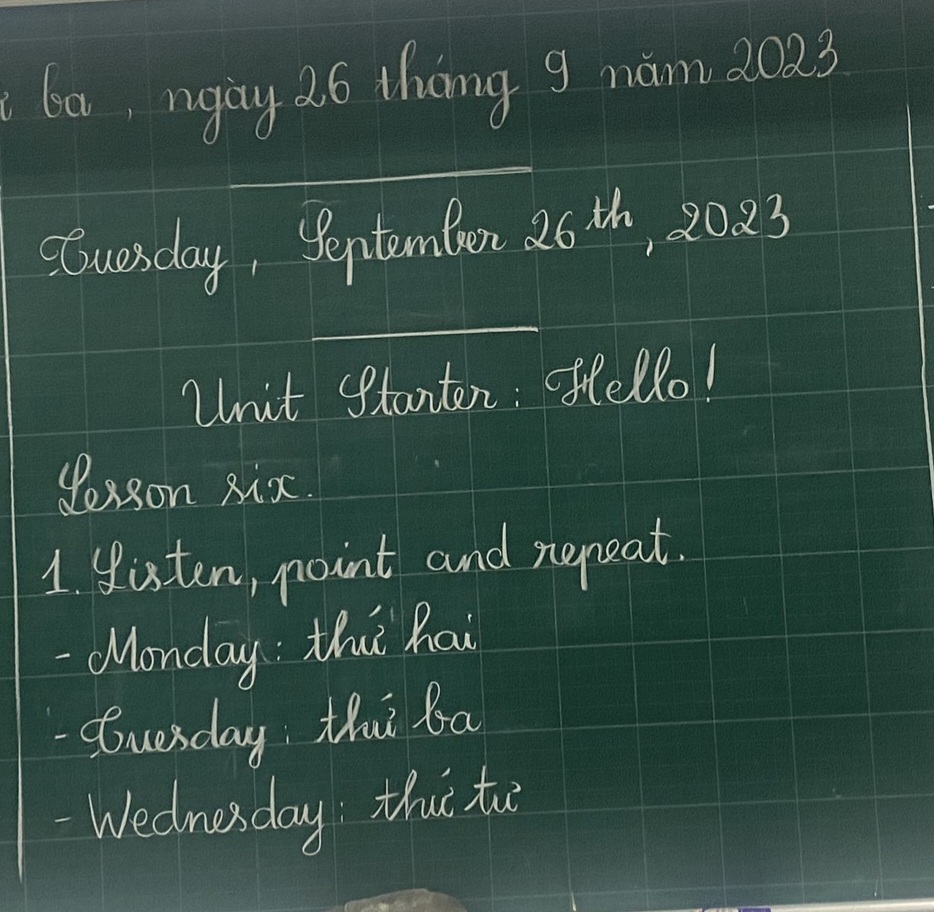 ba, ngày 26 tháng 9 năm 2023
Tuesday, September 26th, 2023
Unit Starter: Hello!
Lesson six.
1. Listen, point and repeat.
- Monday: thứ hai
- Tuesday: thứ ba
- Wednesday: thứ tư